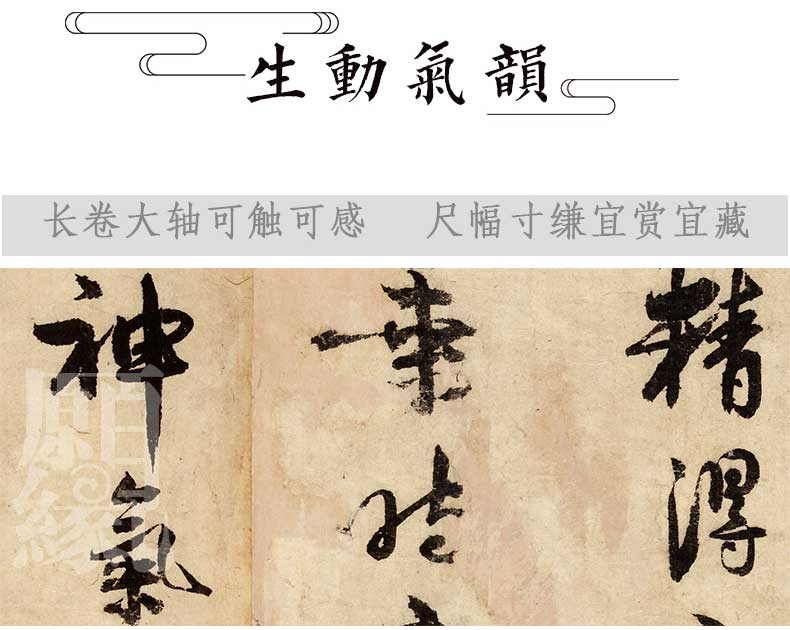 生動氣韻
长卷大轴可触可感 尺幅寸缣宜赏宜藏
精得
乘時
神氣